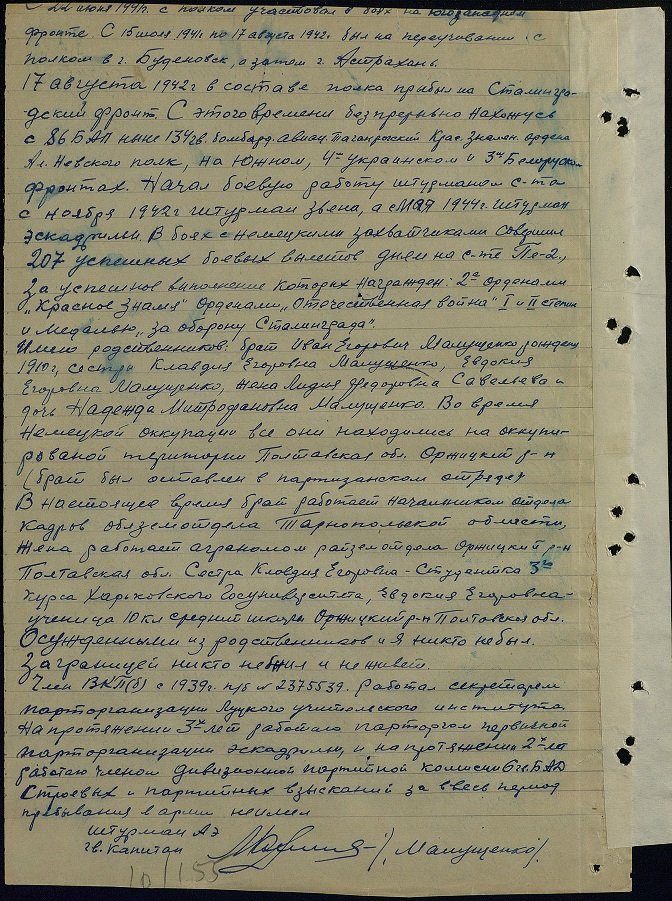 С 22 июня 1941г. с полком участвовал в боях на югозападном
фронте. С 15 июля 1941 по 17 августа 1942г. был на переучивании с
полком в г. Буденовск, а затем г. Астрахань.
17 августа 1942г в составе полка прибыл на Сталингра-
дский фронт. С этого времени безпрерывно нахожусь
с 86 БАП ныне 134 гв. бомбард. авиац. Таганрогский Крас. Знамен. ордена
Ал. Невского полк, на Южном, 4м украинском и 3м Белорусском
фронтах. Начал боевую работу штурманом с-та
с ноября 1942г штурман звена, а с мая 1944г. штурман
эскадрильи. В боях с немецкими захватчиками совершил
207 успешных боевых вылетов днем на с-те Пе-2,
за успешное выполнение которых награжден: 2я орденами
„Красное Знамя" Орденами „Отечественная война" I и II степени
и медалью „за оборону Сталинграда".
Имею родственников: брат Иван Егорович Малущенко рождения
1910г, сестры Клавдия Егоровна Малущенко, Евдокия
Егоровна Малущенко, жена Лидия Федоровна Савельева и
дочь Надежда Митрофановна Малущенко. Во время
немецкой оккупации все они находились на оккупи-
рованой територии Полтавская обл. Оржицкий р-н
(брат был оставлен в партизанском отряде)
В настоящее время брат работает начальником отдела
кадров облземотдела Тарнопольской области,
жена работает аграномом райземотдела Оржицкий р-н
Полтавская обл. Сестра Клавдия Егоровна - студентка 3го
курса Харьковского Госуниверситета, Евдокия Егоровна -
ученица 10 кл средней школы Оржицкий р-н Полтавская обл.
Осужденными из родственников и я никто не был.
За границей никто не был и не живет.
Член ВКП(б) с 1939г. п/б № 2375539. Работал секретарем
парторганизации Луцкого учительского института.
На протяжении 3х лет работаю парторгом первичной
парторганизации эскадрильи, и на протяжении 2х лет
работаю членом дивизионной партийной комиссии 6 гв. БАД
Строевых и партийных взысканий за ввесь период
пребывания в арми неимел
Штурман АЭ
гв. капитан /Малущенко/.